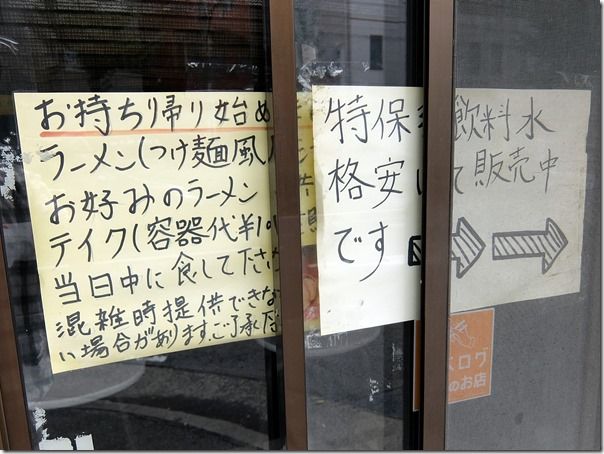 お持ち帰り始め
ラーメン(つけ麺風
お好みのラーメン
テイク(容器代¥10
当日中に食して下さ
混雑時提供できな
い場合があります、ご了承下
特保 飲料水
格安 て販売中
です
ログ
のお店